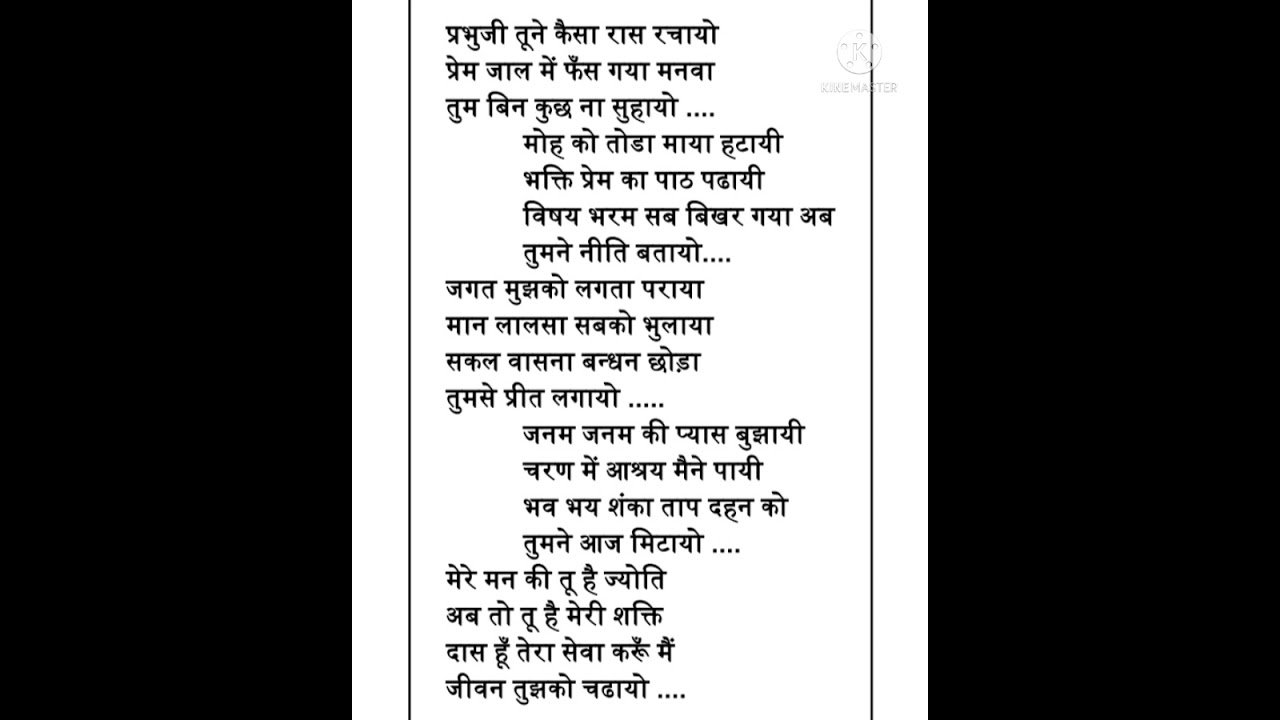 प्रभुजी तूने कैसा रास रचायो
प्रेम जाल में फँस गया मनवा
तुम बिन कुछ ना सुहायो ....
मोह को तोडा माया हटायी
भक्ति प्रेम का पाठ पढायी
विषय भरम सब बिखर गया अब
तुमने नीति बतायो....
जगत मुझको लगता पराया
मान लालसा सबको भुलाया
सकल वासना बन्धन छोड़ा
तुमसे प्रीत लगायो .....
जनम जनम की प्यास बुझायी
चरण में आश्रय मैने पायी
भव भय शंका ताप दहन को
तुमने आज मिटायो ....
मेरे मन की तू है ज्योति
अब तो तू है मेरी शक्ति
दास हूँ तेरा सेवा करूँ मैं
जीवन तुझको चढायो ....
K
KINEMASTER